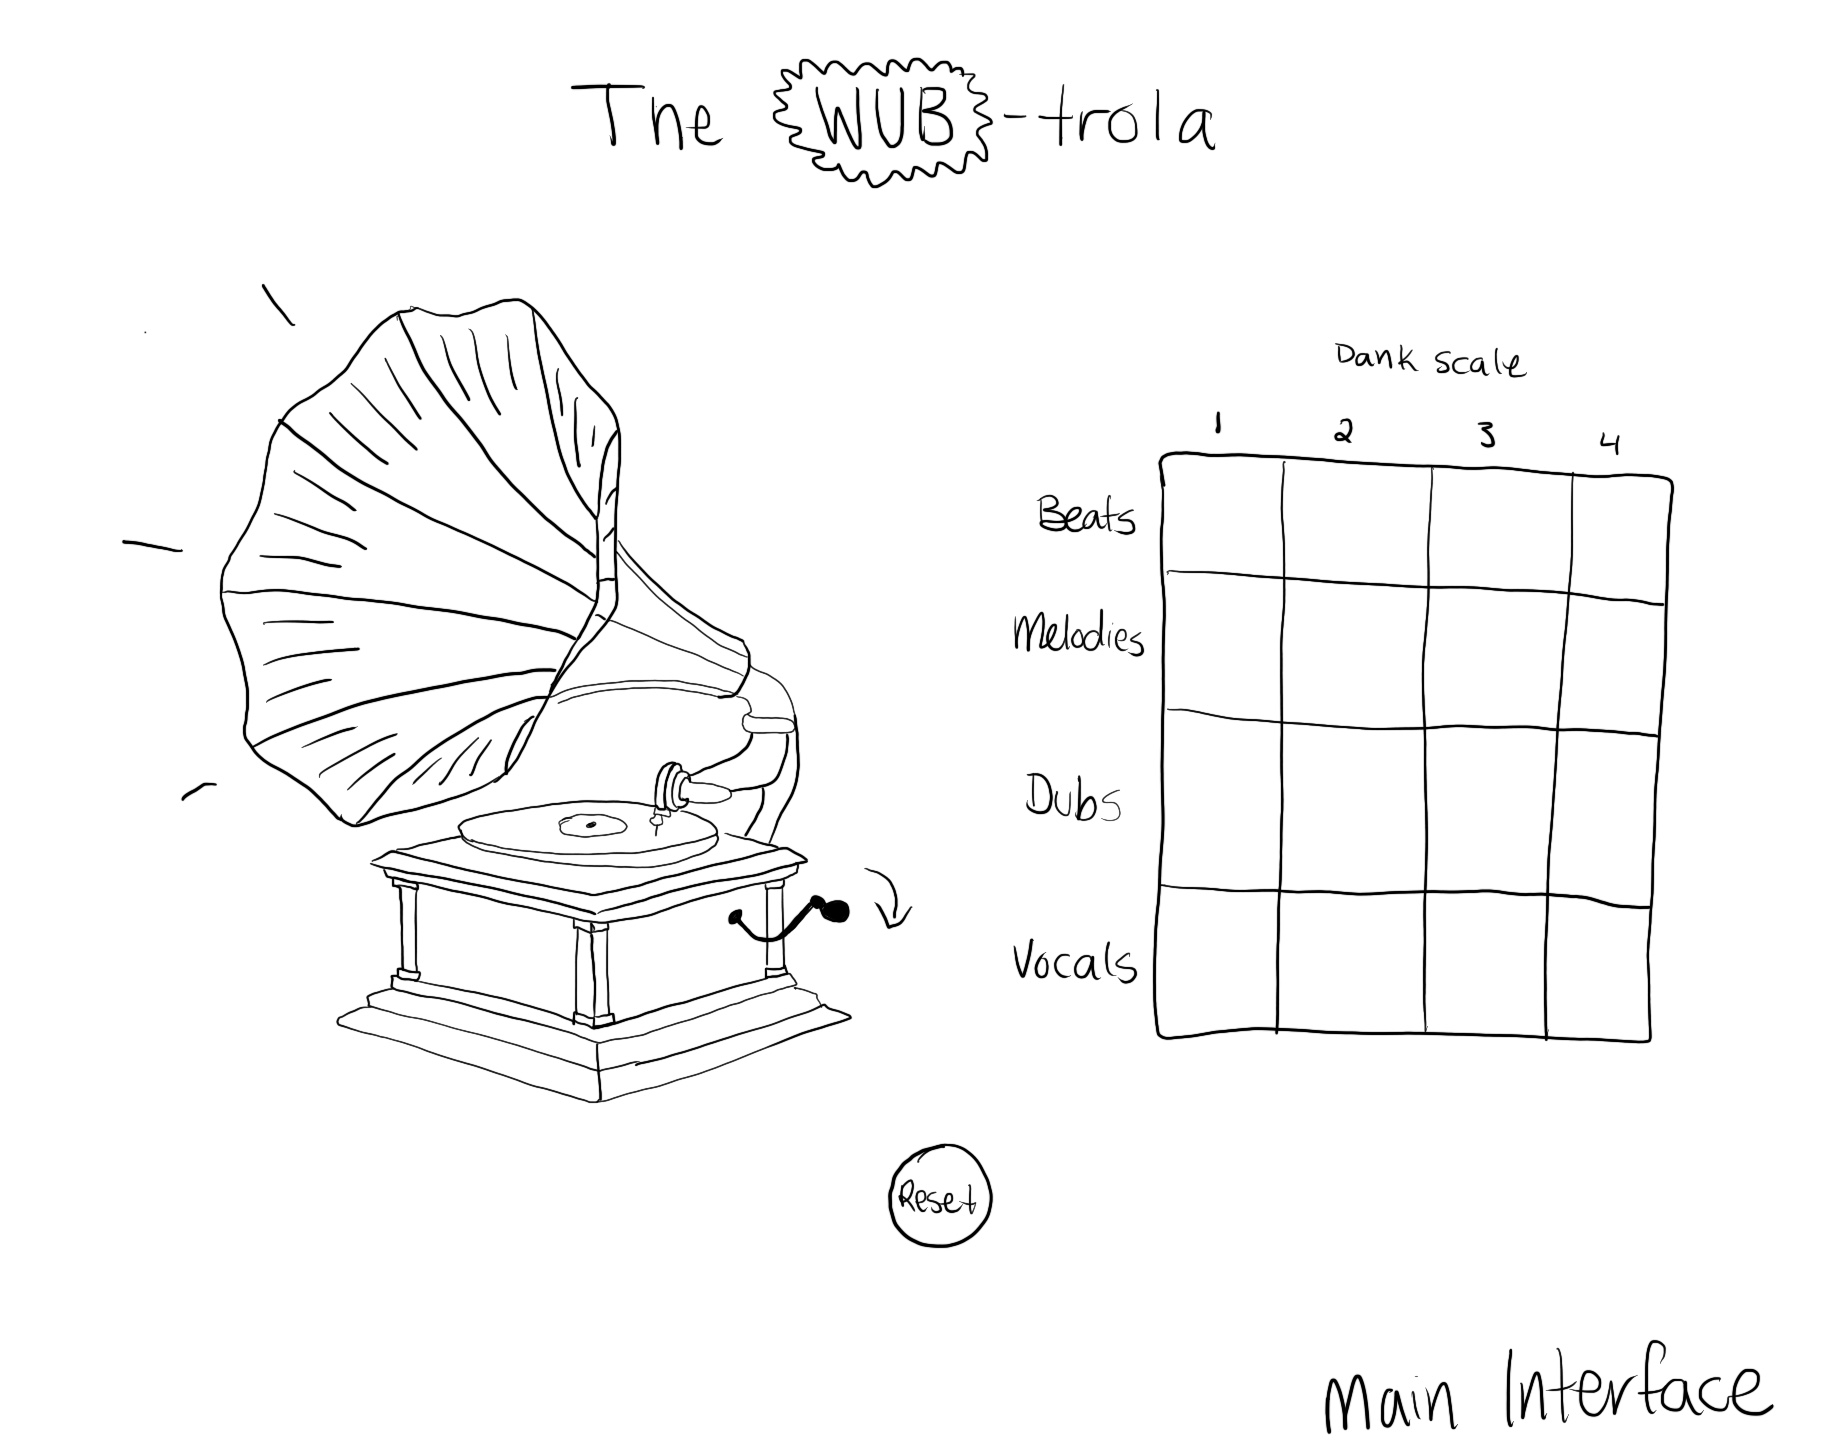 The WUB-trola
Dank scale
1 2 3 4
Beats
Melodies
Dubs
Vocals
Reset
Main Interface